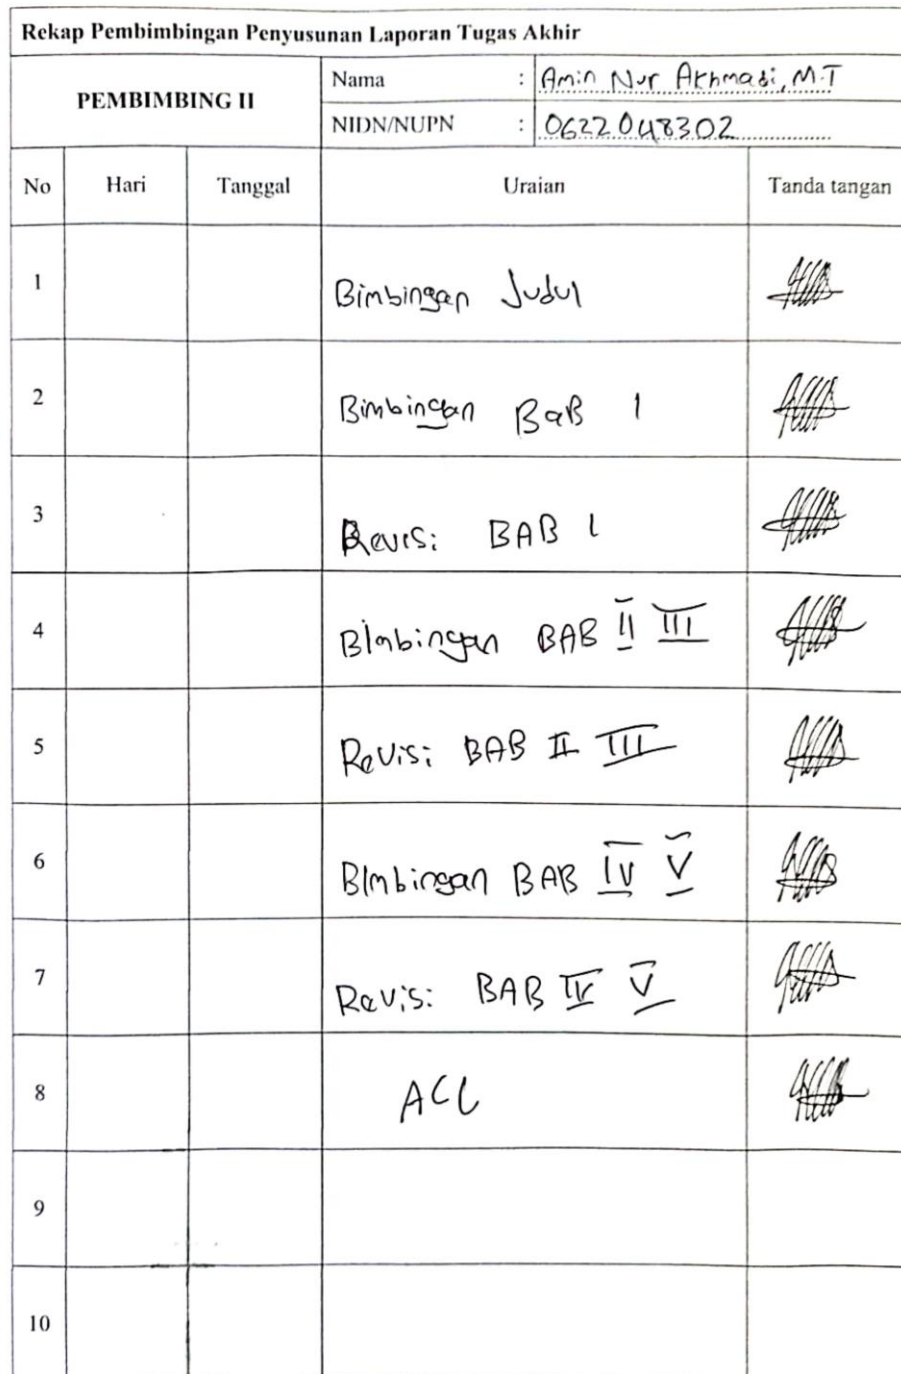 Rekap Pembimbingan Penyusunan Laporan Tugas Akhir
PEMBIMBING II
Nama : Amin Nur Akhmadi, M.T
NIDN/NUPN : 0622048302
No Hari Tanggal Uraian Tanda tangan
1 Bimbingan Judul
2 Bimbingan BaB 1
3 Revisi BAB 1
4 BImbingan BAB II III
5 Revisi BAB II III
6 BImbingan BAB IV V
7 Revisi BAB IV V
8 ACC
9
10